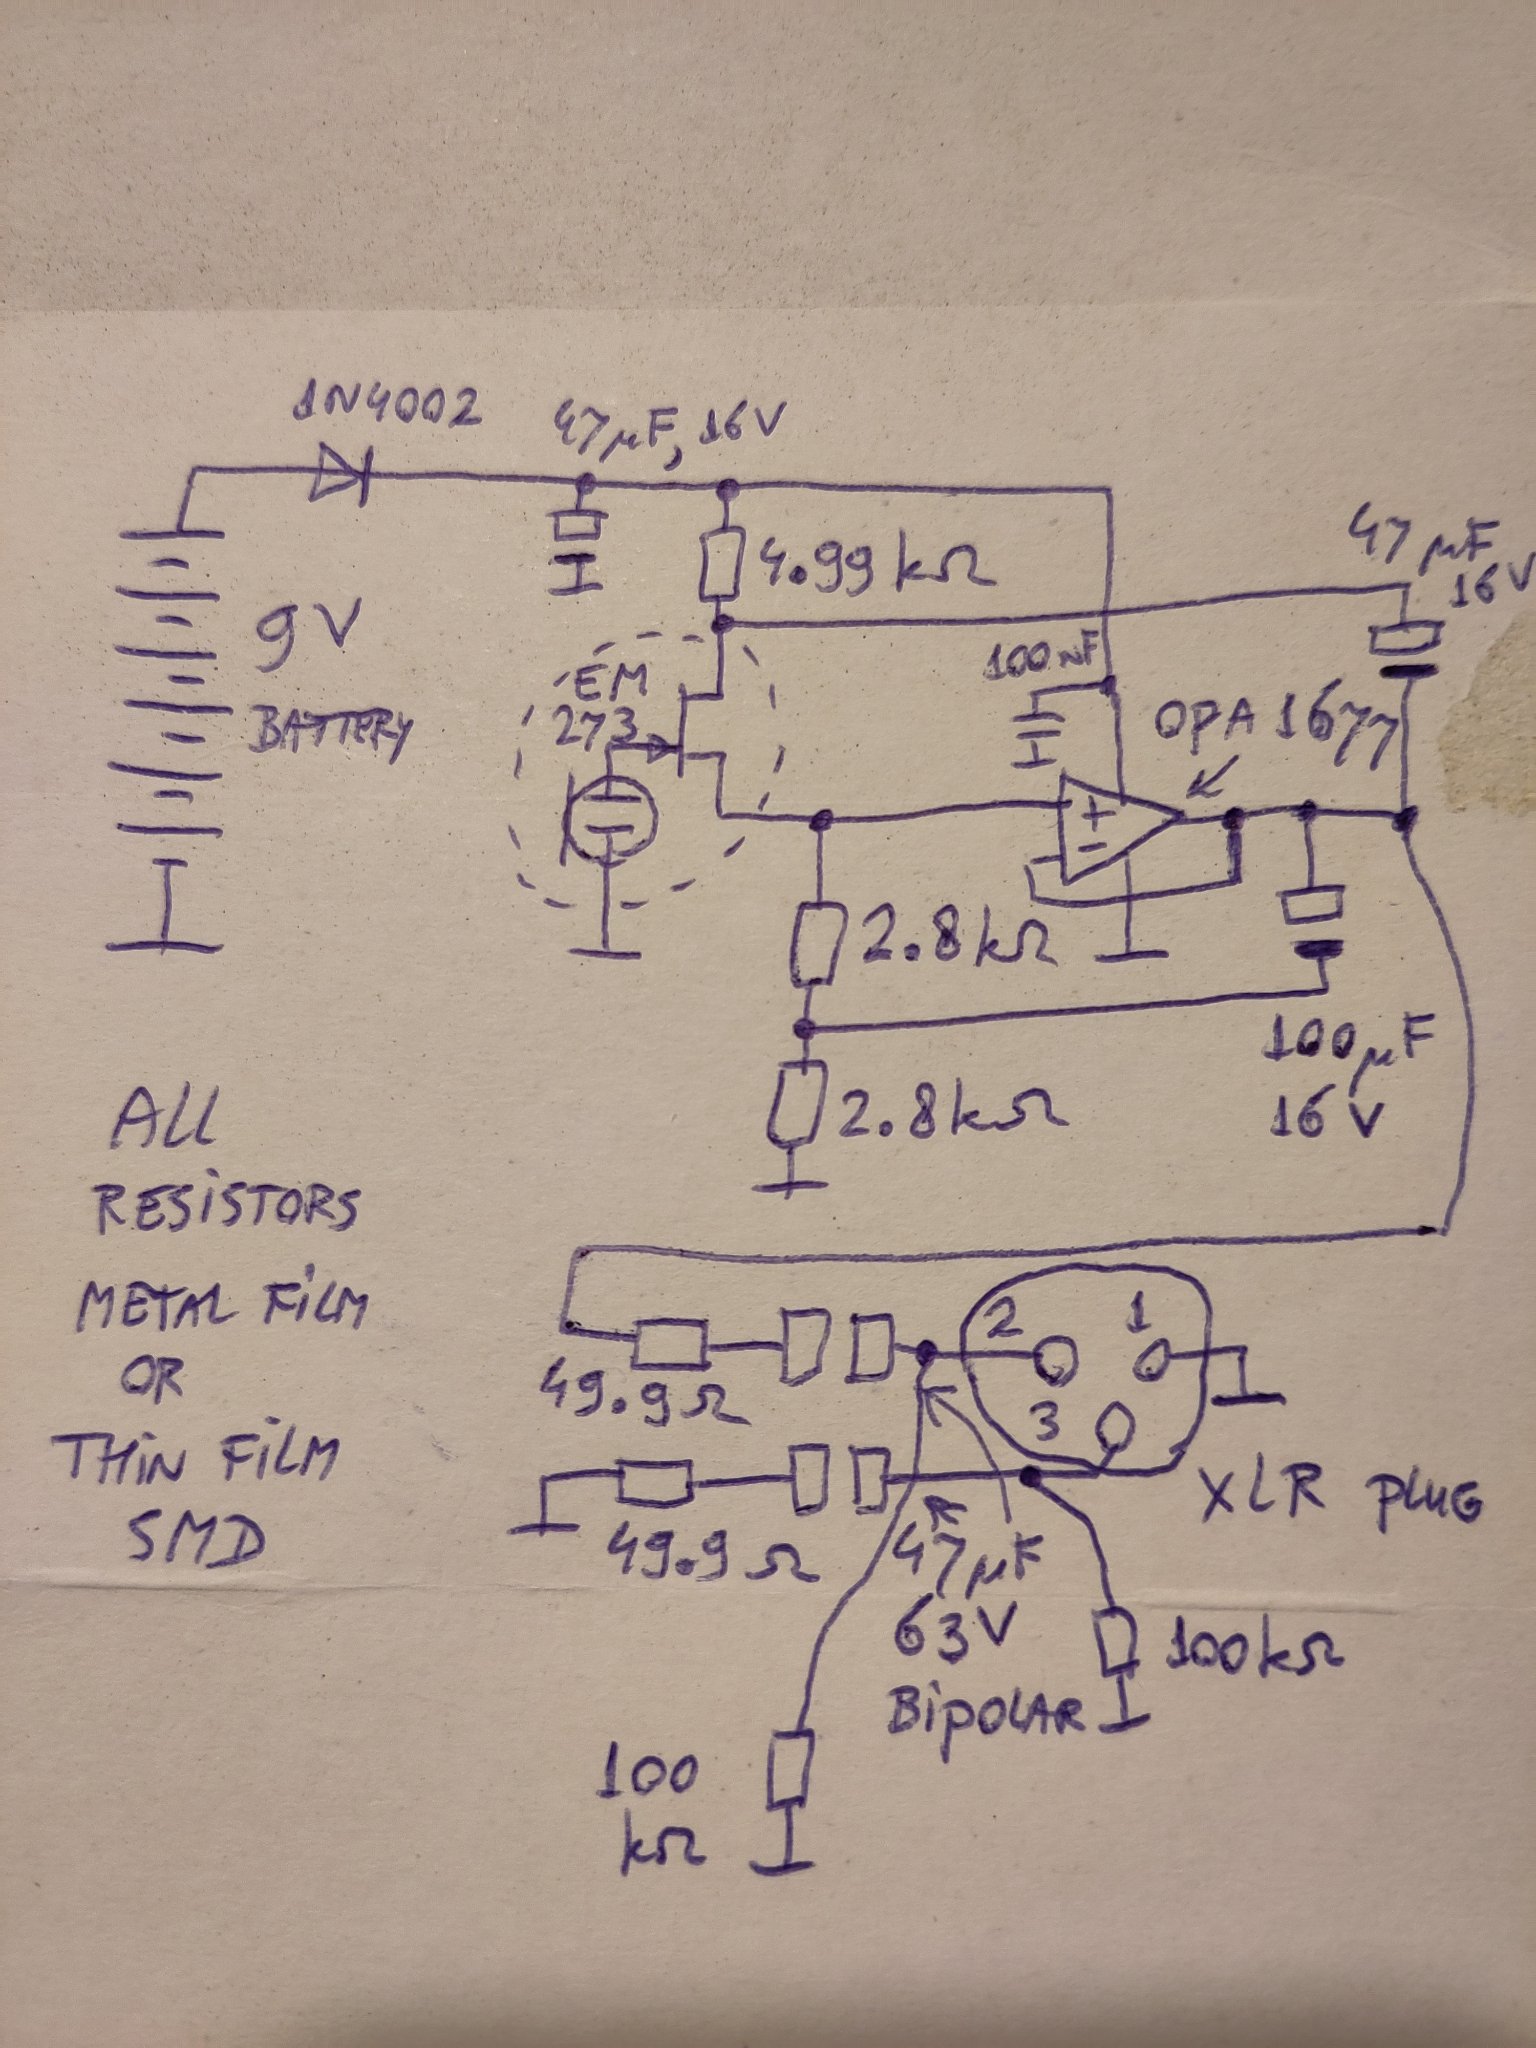 1N4002
47µF, 16V
4.99kΩ
47µF
16V
9V
BATTERY
EM
273
100nF
OPA1677
+
-
2.8kΩ
2.8kΩ
100µF
16V
ALL
RESISTORS
METAL FILM
OR
THIN FILM
SMD
2
1
3
49.9Ω
49.9Ω
XLR PLUG
47µF
63V
BipOLAR
100kΩ
100
kΩ